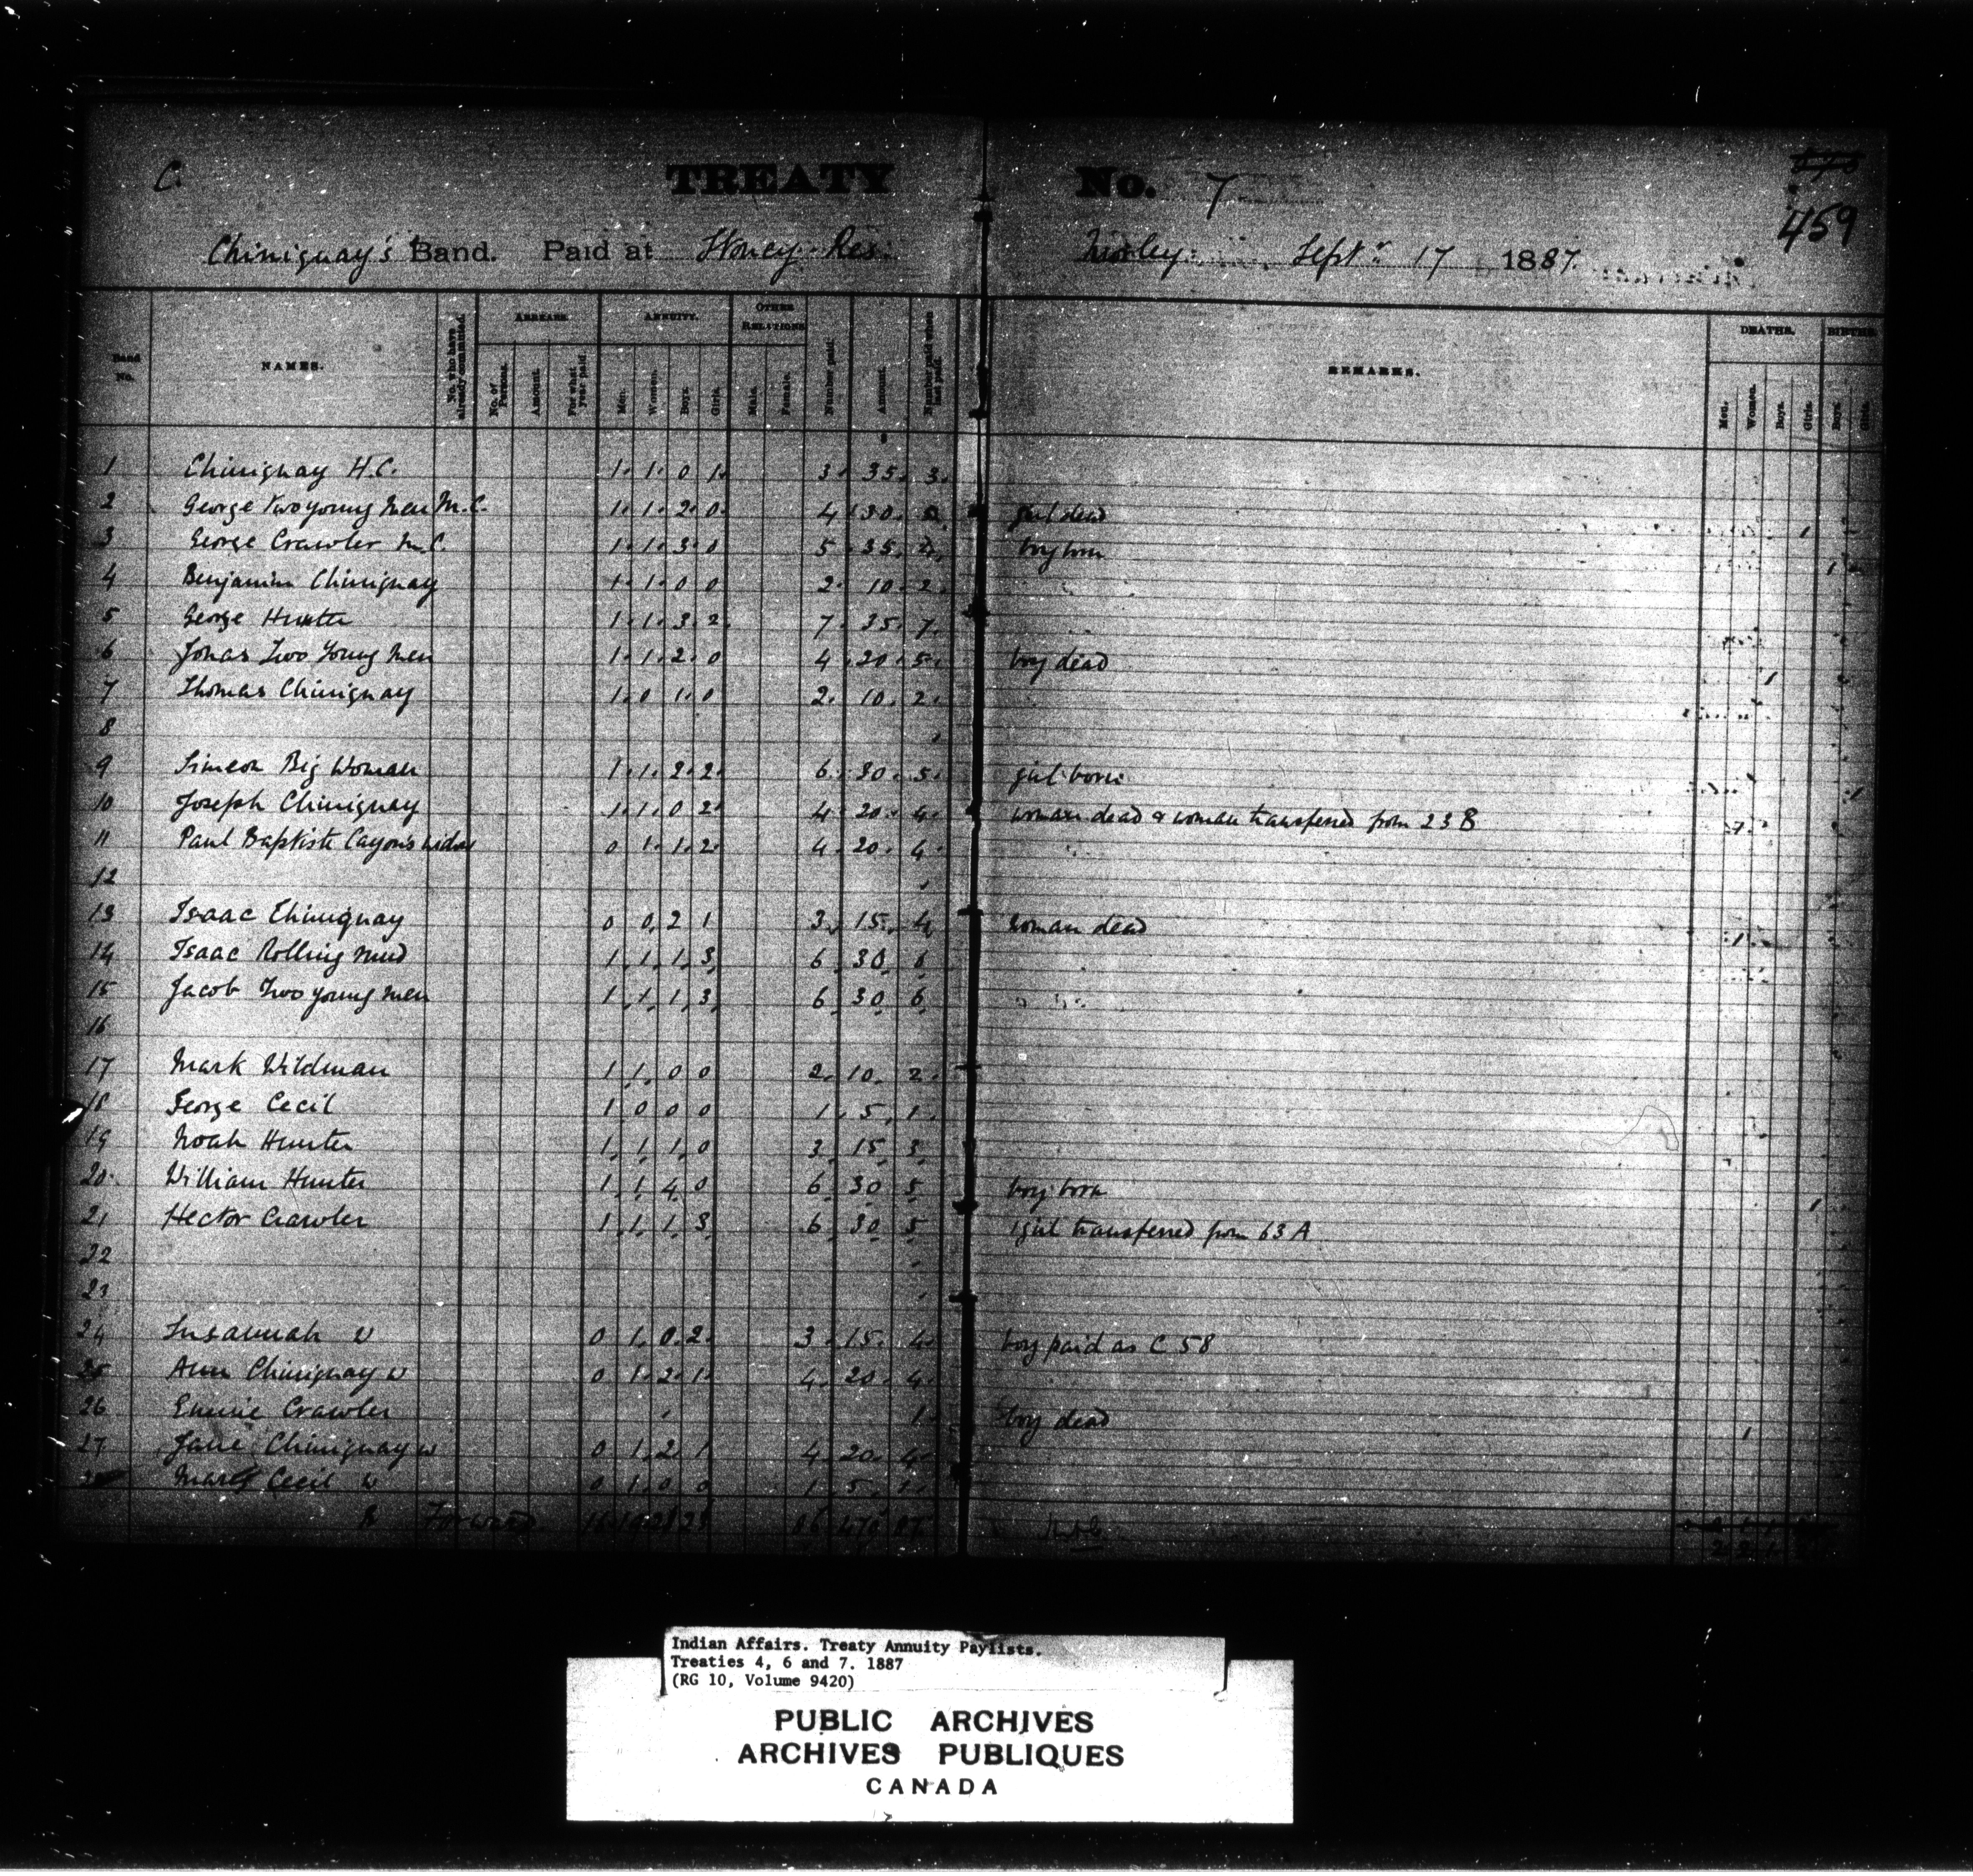 C. TREATY No. 7
459
Chiniquay's Band. Paid at Stoney Res: Morley: Septr 17 1887.
Band No. NAMES. No. who have already commuted. ARREARS. ANNUITY. OTHER RELATIONS Number paid. Amount. Number paid when last paid. REMARKS. DEATHS. BIRTHS.
No. of Persons. Amount. For what year paid. Men. Women. Boys. Girls. Male. Female. Men. Women. Boys. Girls. Boys. Girls.
1 Chiniquay H.C. 1 1 0 1 3 35 3
2 George Two young Men M.C. 1 1 2 0 4 30 girl dead 1
3 George Crawler M.C. 1 1 3 0 5 35 4 boy born 1
4 Benjamin Chiniquay 1 1 0 0 2 10 2
5 George Hunter 1 1 3 2 7 35 7
6 Jonas Two Young Men 1 1 2 0 4 20 5 boy dead 1
7 Thomas Chiniquay 1 0 1 0 2 10 2
8
9 Simeon Big Woman 1 1 2 2 6 30 5 girl born 1
10 Joseph Chiniquay 1 1 0 2 4 20 4 woman dead & woman transferred from 23 B 1
11 Paul Baptiste Cayon's widow 0 1 1 2 4 20 4
12
13 Isaac Chiniquay 0 0 2 1 3 15 4 woman dead 1
14 Isaac Rolling Mud 1 1 1 3 6 30 6
15 Jacob Two young Men 1 1 1 3 6 30 6
16
17 Mark Wildman 1 1 0 0 2 10 2
18 George Cecil 1 0 0 0 1 5 1
19 Noah Hunter 1 1 1 0 3 15 3
20 William Hunter 1 1 4 0 6 30 5 boy born 1
21 Hector Crawler 1 1 1 3 6 30 5 1 girl transferred from 63 A
22
23
24 Susannah W 0 1 0 2 3 15 4 boy paid as C 58
25 Ann Chiniquay W 0 1 2 1 4 20 4
26 Emmie Crawler 1 boy dead 1
27 Jane Chiniquay W 0 1 2 1 4 20 4
28 Mary Cecil W 0 1 0 0 1 5 1
Forward
Indian Affairs. Treaty Annuity Paylists.
Treaties 4, 6 and 7. 1887
(RG 10, Volume 9420)
PUBLIC ARCHIVES
ARCHIVES PUBLIQUES
CANADA